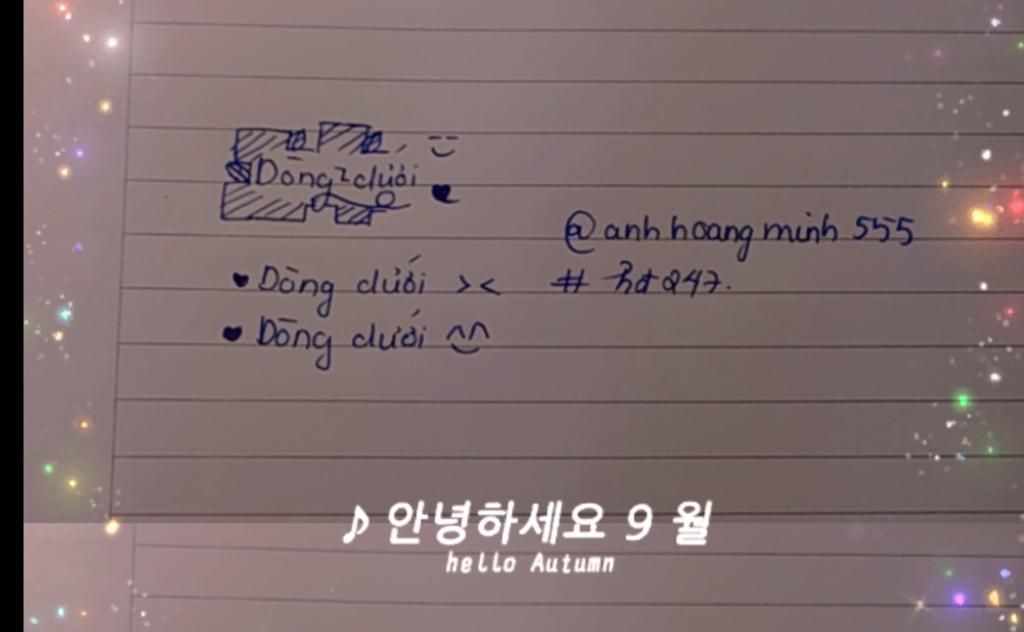 Dòng 2 dưới
@anhhoangminh555
Dòng dưới ><
#
Dòng dưới ^^
♪ 안녕하세요 9 월
hello Autumn